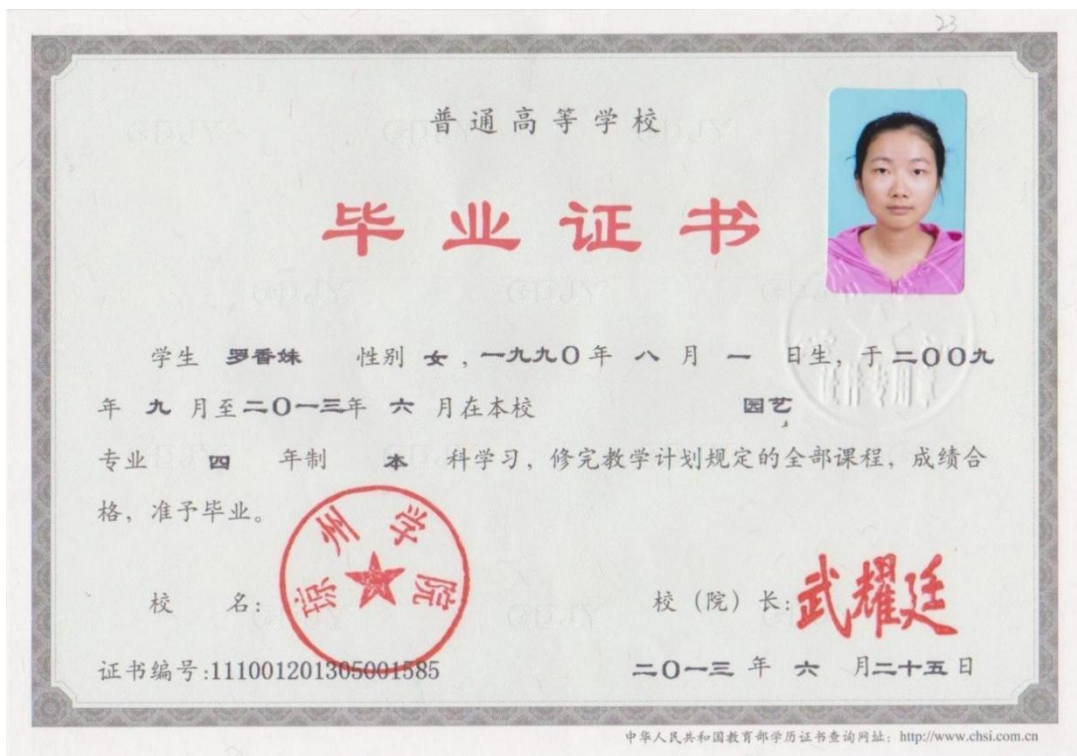 23
普通高等学校
毕业证书
学生 罗香妹 性别 女，一九九〇年 八 月 一 日生，于二〇〇九
年 九 月至二〇一三年 六 月在本校 园艺
专业 四 年制 本 科学习，修完教学计划规定的全部课程，成绩合
格，准予毕业。
琼州学院
校 名：
校（院）长：武耀廷
证书编号:111001201305001585
二〇一三 年 六 月二十五日
中华人民共和国教育部学历证书查询网址：http://www.chsi.com.cn